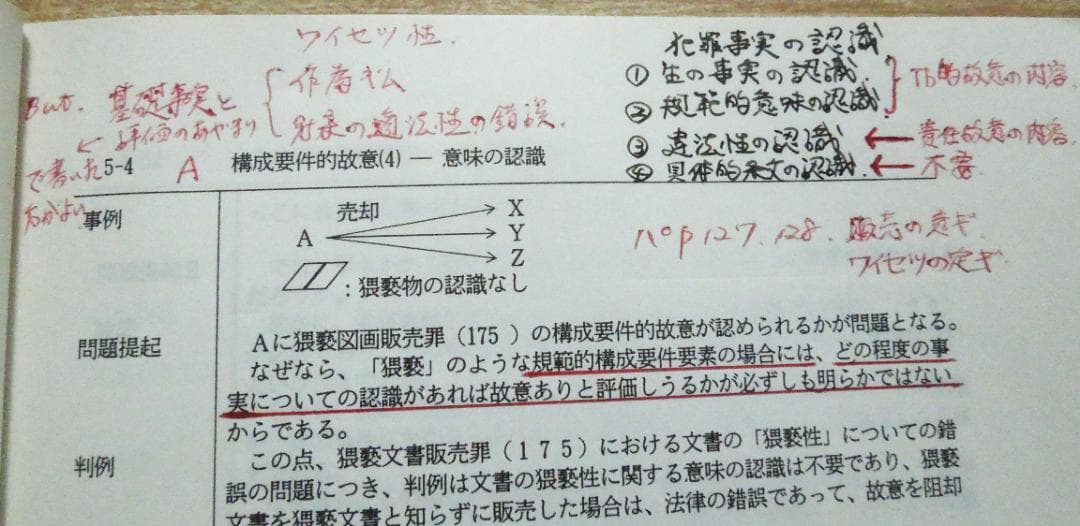 ワイセツ性.
作為ギム
財産の違法性の錯誤
But. 基礎事実と
← 評価のあやまり
で書いた
方がよい
A
犯罪事実の認識
① 生の事実の認識
② 規範的意味の認識
Tb的故意の内容.
③ 違法性の認識 ← 責任故意の内容.
④ 具体的条文の認識 ← 不要
5-4 構成要件的故意(4) ― 意味の認識
事例
売却
A
X
Y
Z
:猥褻物の認識なし
パP127. 128. 販売の定ギ.
ワイセツの定ギ.
問題提起
Aに猥褻図画販売罪(175)の構成要件的故意が認められるかが問題となる。
なぜなら、「猥褻」のような規範的構成要件要素の場合には、どの程度の事
実についての認識があれば故意ありと評価しうるかが必ずしも明らかではない
からである。
判例
この点、猥褻文書販売罪(175)における文書の「猥褻性」についての錯
誤の問題につき、判例は文書の猥褻性に関する意味の認識は不要であり、猥褻
文書を猥褻文書と知らずに販売した場合は、法律の錯誤であって、故意を阻却